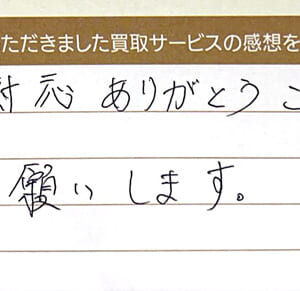 ただきました買取サービスの感想を
対応 ありがとうご
願いします。